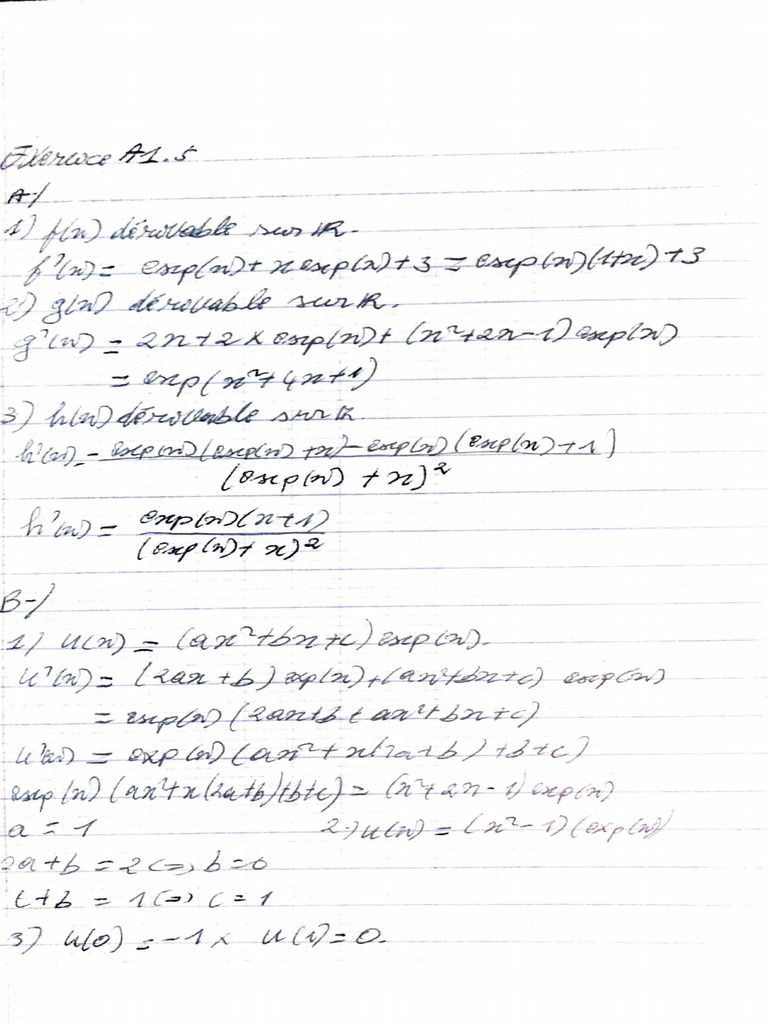 Exercice A1.5
A-/
1) f(x) dérivable sur ℝ.
f'(x) = exp(x) + x exp(x) + 3 = exp(x)(1+x) + 3
2) g(x) dérivable sur ℝ.
g'(x) = 2x + 2 × exp(x) + (x²+2x-1) exp(x)
= exp(x²+4x+1)
3) h(x) dérivable sur ℝ
h'(x) = exp(x)(exp(x) + x) - exp(x)(exp(x)+1)
(exp(x) + x)²
h'(x) = exp(x)(x+1)
(exp(x) + x)²
B-/
1) u(x) = (ax²+bx+c) exp(x).
u'(x) = (2ax+b) exp(x) + (ax²+bx+c) exp(x)
= exp(x) (2ax+b+ax²+bx+c)
u'(x) = exp(x) (ax²+x(2a+b)+b+c)
exp(x) (ax²+x(2a+b)+b+c) = (x²+2x-1) exp(x)
a = 1 2-) u(x) = (x²-1)(exp(x))
2a+b = 2 <=> b=0
c+b = 1 <=> c = 1
3) u(0) = -1 × u(1) = 0.